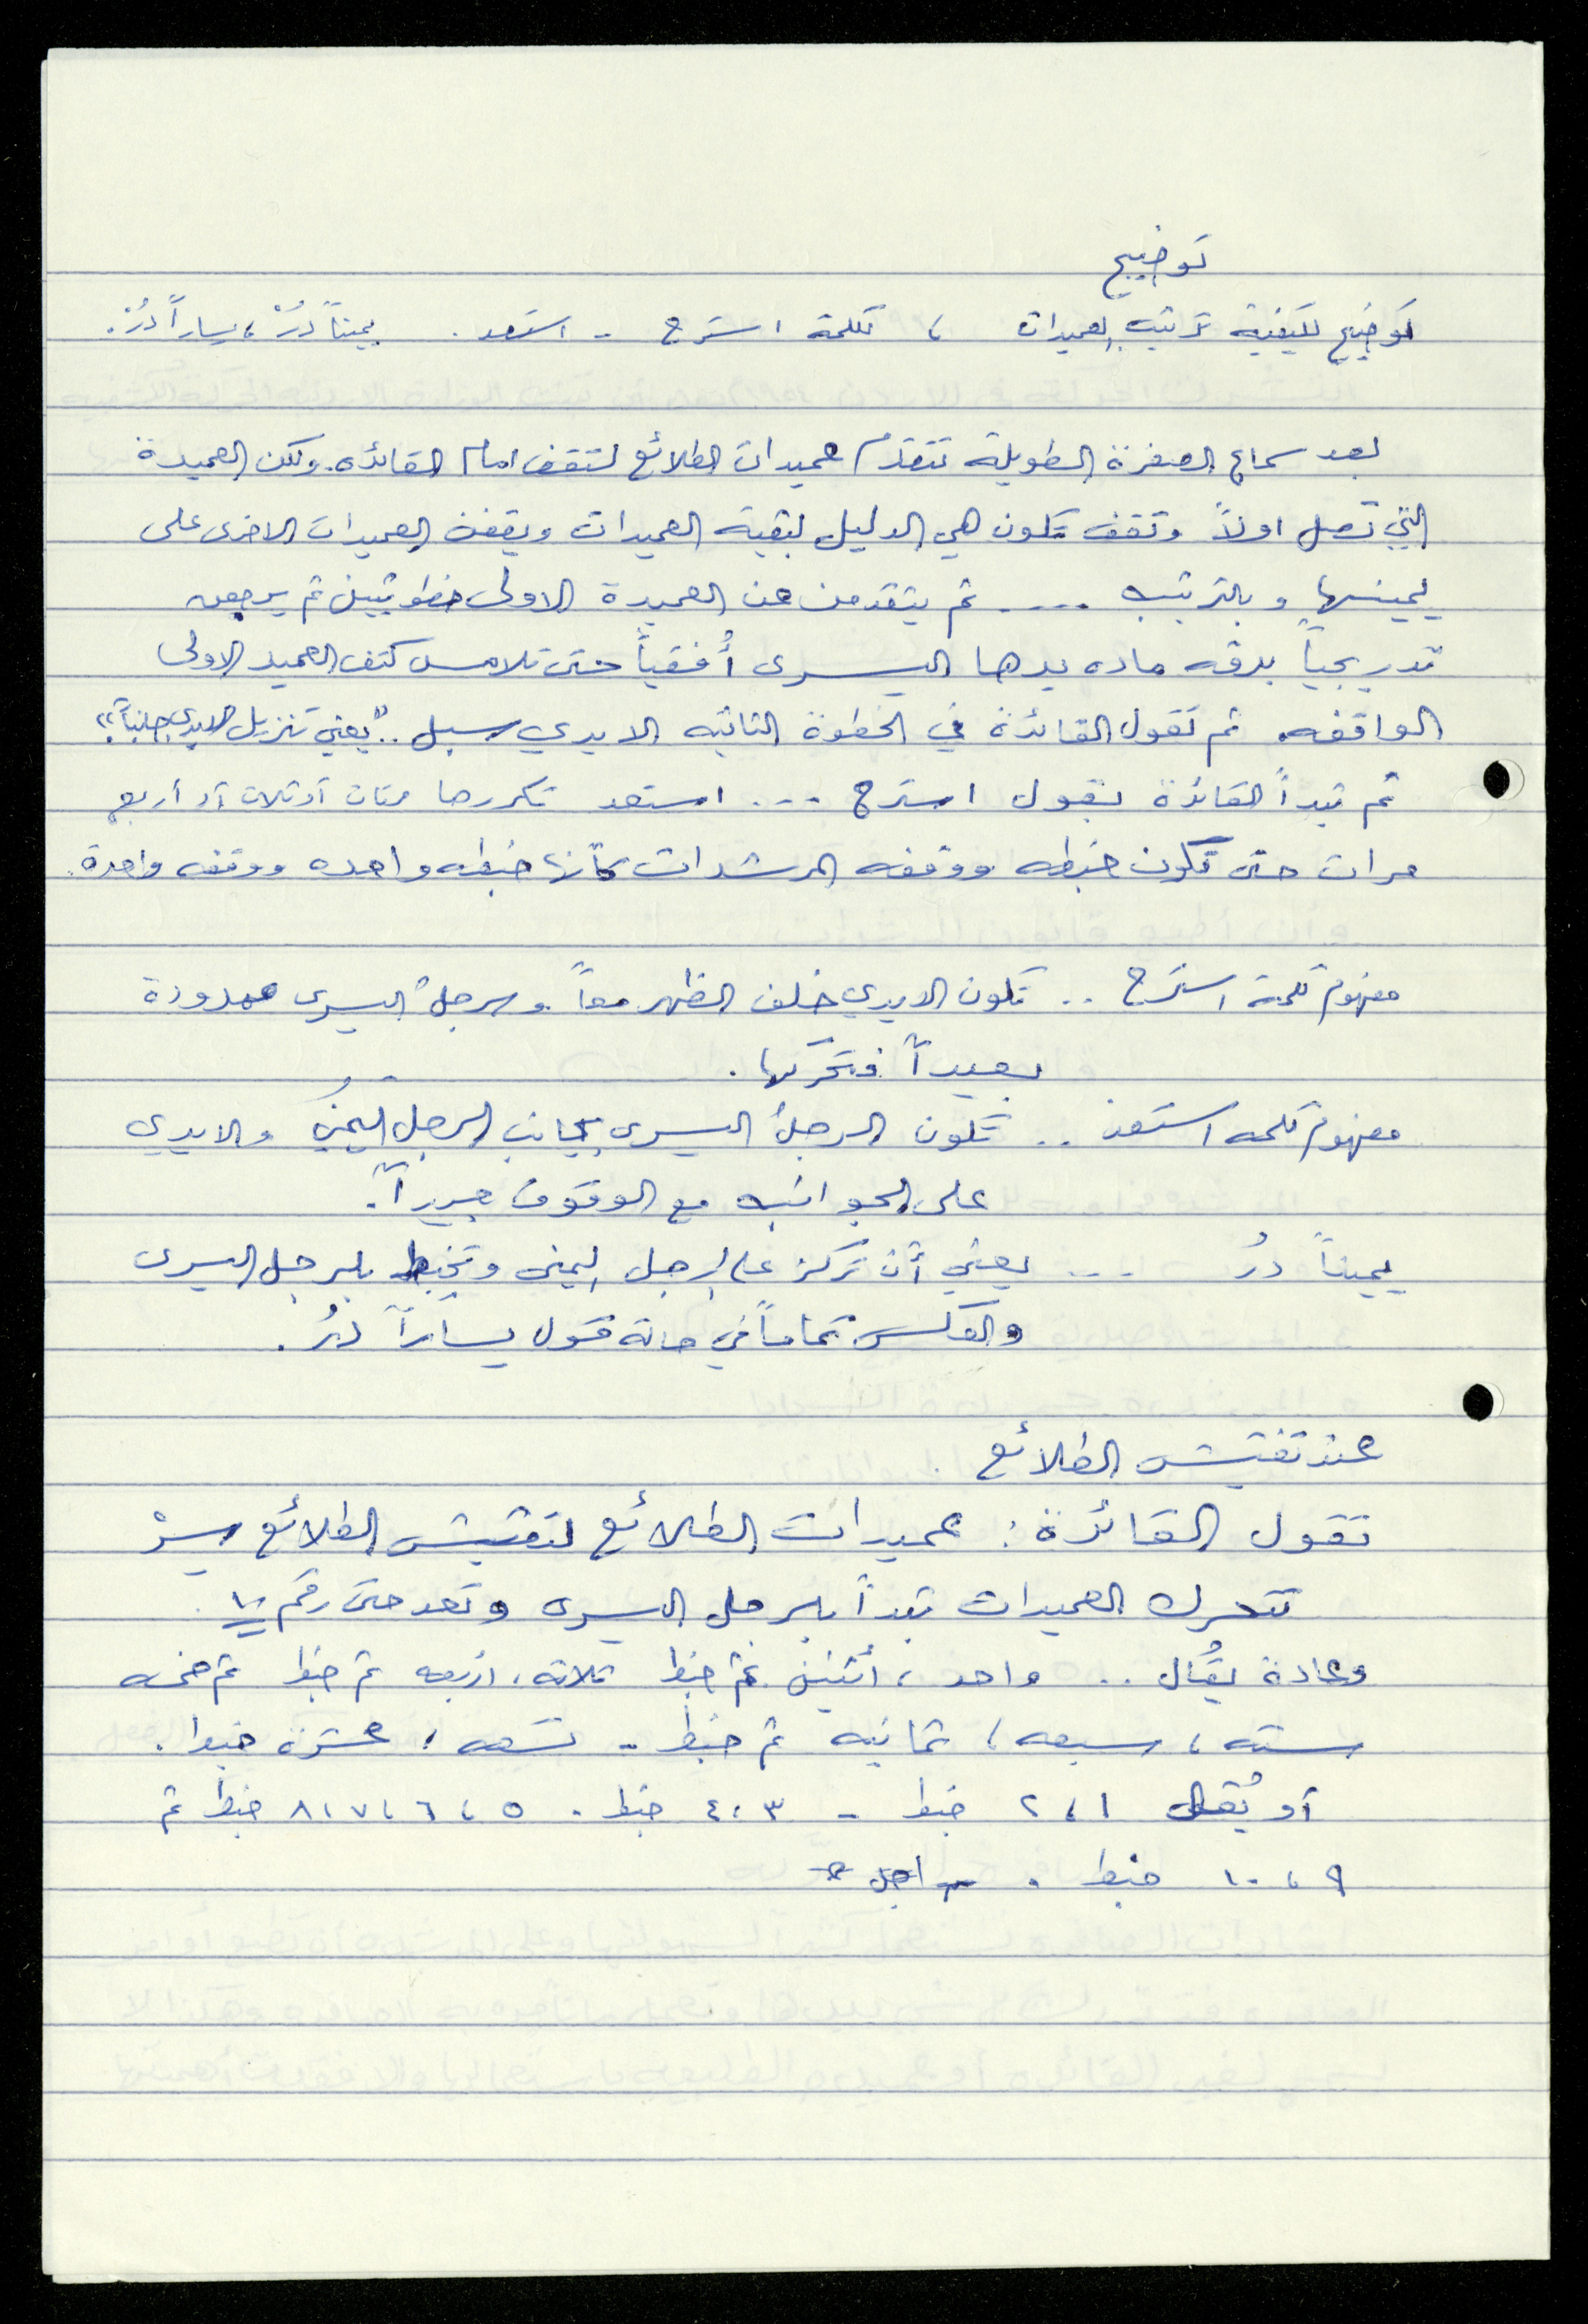 توضيح
توضيح لكيفية ترتيب العميدات ، كلمة استرح - استعد . يميناً دُرْ ، يساراً دُرْ .
بعد سماع الصفرة الطويلة تتقدم عميدات الطلائع لتقف امام القائده. ولكن العميدة
التي تصل اولاً وتقف تكون هي الدليل لبقية العميدات ويقفن العميدات الاخرى على
يمينها وبالترتيب .... ثم يتقدمن عن العميدة الاولى خطوتين ثم يرجعن
تدريجياً بدقه ماده يدها اليسرى أُفقياً حتى تلامس كتف العميد الاولى
الواقفه. ثم تقول القائدة في الخطوة الثانيه الايدي سبل .. "يعني تنزيل الايدي جانباً"
ثم تبدأ القائدة بقول استرح ... استعد تكررها مرتان أو ثلاث أو أربع
مرات حتى تكون خبطه ووقفه المرشدات كأنها خبطه واحده ووقفه واحدة.
مفهوم كلمة استرح .. تكون الايدي خلف الظهر معاً والرجل اليسرى ممدودة
بعيداً فتحركها .
مفهوم كلمه استعد .. تكون الرجل اليسرى بجانب الرجل اليمنى والايدي
على الجوانب مع الوقوف جيداً .
يميناً دُر ... يعني أن تركز على الرجل اليمنى وتخبط بالرجل اليسرى
والعكس تماماً في حالة قول يساراً دُر .
عند تفتيش الطلائع
تقول القائدة : عميدات الطلائع لتفتيش الطلائع سِرْ
تتحرك العميدات تبدأ بالرجل اليسرى وتعد حتى رقم ١٠
وعادة يُقال .. واحد ، أثنين ثم خبط ثلاثه ، اربعه ثم خبط ثم خمسه
سته ، سبعه ، ثمانيه ثم خبط - تسعه ، عشرة خبط .
أو يُقال ١ ، ٢ خبط - ٣ ، ٤ خبط . ٥ ، ٦ ، ٧ ، ٨ خبط ثم
٩ ، ١٠ خبط .